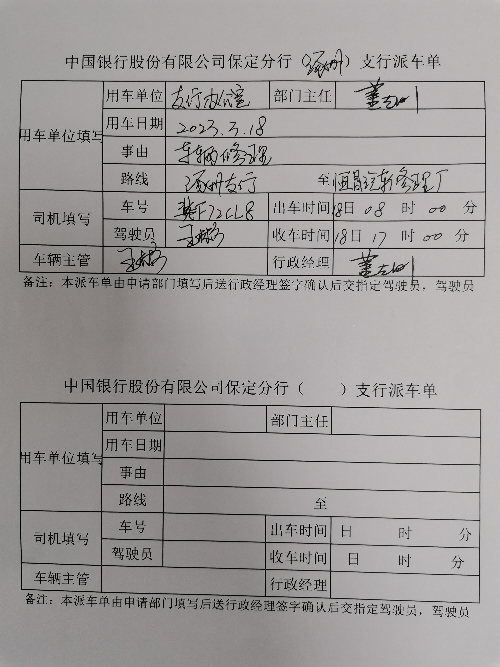 中国银行股份有限公司保定分行（涿州）支行派车单
用车单位填写 用车单位 支行办公室 部门主任
用车日期 2023.3.18
事由 车辆修理
路线 涿州支行 至 恒昌汽车修理厂
司机填写 车号 冀F72CL8 出车时间 18日 08 时 00 分
驾驶员 收车时间 18日 17 时 00 分
车辆主管 行政经理
备注：本派车单由申请部门填写后送行政经理签字确认后交指定驾驶员，驾驶员
中国银行股份有限公司保定分行（ ）支行派车单
用车单位填写 用车单位 部门主任
用车日期
事由
路线 至
司机填写 车号 出车时间 日 时 分
驾驶员 收车时间 日 时 分
车辆主管 行政经理
备注：本派车单由申请部门填写后送行政经理签字确认后交指定驾驶员，驾驶员